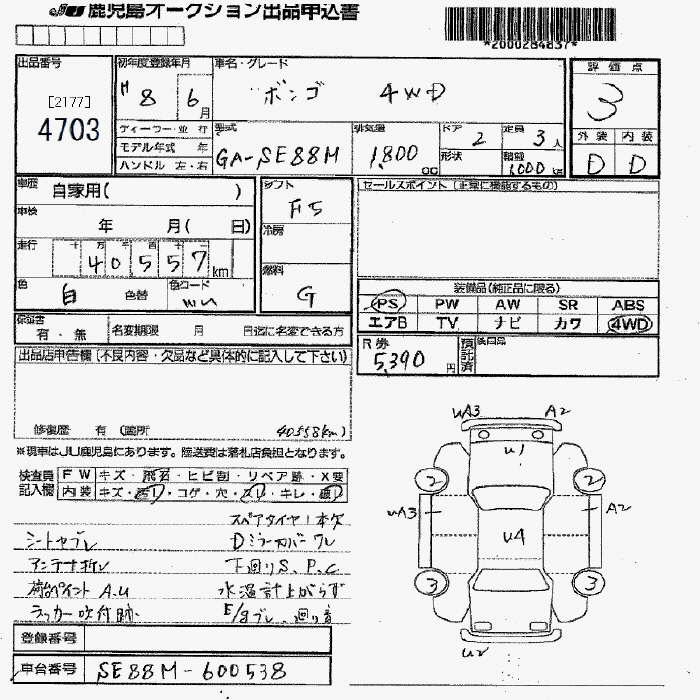 JU 鹿児島オークション出品申込書
*2000284837*
出品番号
[2177]
4703
初年度登録年月
H 8 6月
車名・グレード
ボンゴ 4WD
評価点
3
外装 内装
D D
ディーラー・並行
モデル年式 年
ハンドル 左・右
型式
GA-SE88M
排気量
1,800 cc
ドア
2
定員
3人
形状
積載
1,000 kg
車歴
自家用( )
車検
年 月( 日)
走行
十 万 千 百 十 一
40557 km
色
白 色替
色コード
シフト
F5
冷房
燃料
G
セールスポイント(正常に機能するもの)
装備品(純正品に限る)
PS PW AW SR ABS
エアB TV ナビ カワ 4WD
保証書
有・無
名変期限 月 日迄に名変できる方
R券
5,390円
預託済
後日品
出品店申告欄(不良内容・欠品など具体的に記入して下さい)
修復歴 有 (箇所 40558km)
※現車はJU鹿児島にあります。陸送費は落札店負担となります。
検査員記入欄
FW キズ・飛石・ヒビ割・リペア跡・X要
内装 キズ・汚レ・コゲ・穴・スレ・キレ・破レ
スペアタイヤ1本欠
シートヤブレ
Dミラーカバーワレ
アンテナ折レ
下回りS.P.C
荷台ペイントA.U
水温計上がらず
ラッカー吹付跡
E/gブレ
登録番号
車台番号
SE88M-600538
uA3 A2
u1
2 2
uA3 A2
u4
3 3
u2